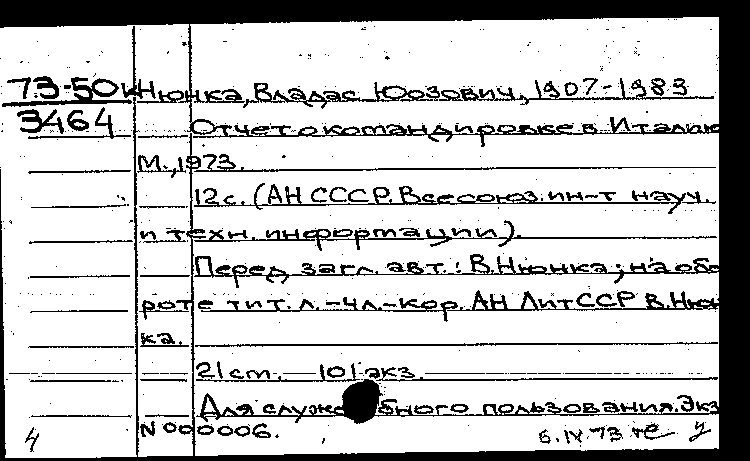 73-50к Нюнка, Владас Юозович, 1907-1983
3464 Отчет о командировке в Италию
М., 1973.
12с. (АН СССР. Всесоюз. ин-т науч.
и техн. информации).
Перед загл. авт.: В. Нюнка; на обо
роте тит. л. -чл.-кор. АН ЛитССР В. Нюн
ка.
21 cm. 101 экз.
Для служебного пользования. Экз
N 000006.
4 5.IV.73